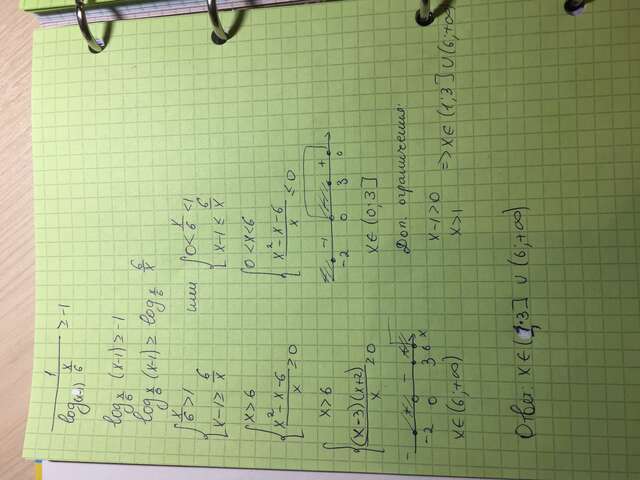 1 / log(x-1) x/6 ≥ -1
log x/6 (x-1) ≥ -1
log x/6 (x-1) ≥ log x/6 6/x
{ x/6 > 1
x-1 ≥ 6/x
или { 0 < x/6 < 1
x-1 ≤ 6/x
{ x > 6
(x² - x - 6)/x ≥ 0
{ 0 < x < 6
(x² - x - 6)/x ≤ 0
{ x > 6
(x-3)(x+2)/x ≥ 0
-2 0 3 6 x
x∈(6;+∞)
-2 0 3
x∈(0;3]
Доп. ограничения:
x-1>0
x>1
=> x∈(1;3]∪(6;+∞)
Ответ: x∈(1;3] ∪ (6;+∞)